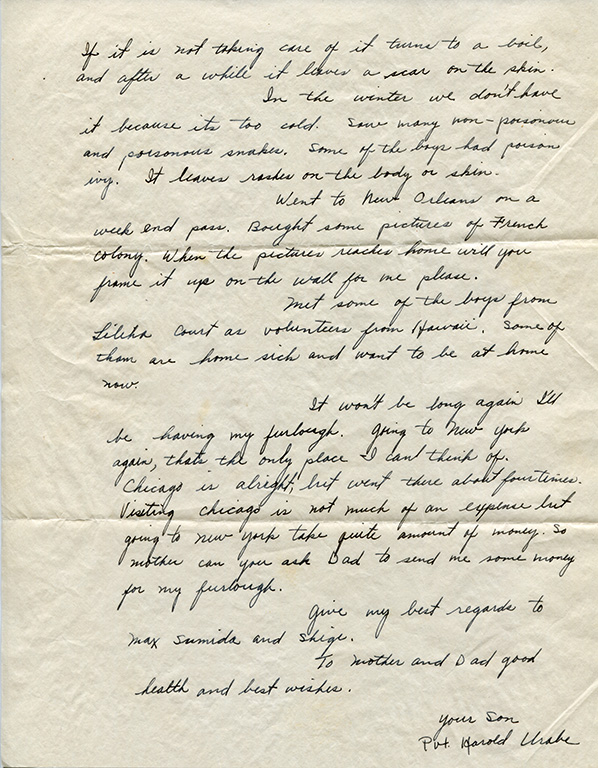 If it is not taking care of it turns to a boil,
and after a while it leaves a scar on the skin.
In the winter we don't have
it because its too cold. Saw many non-poisonous
and poisonous snakes. Some of the boys had poison
ivy. It leaves rashes on the body or skin.
Went to New Orleans on a
week end pass. Bought some pictures of French
Colony. When the pictures reaches home will you
frame it up on the wall for me please.
Met some of the boys from
Liliha Court as volunteers from Hawaii. Some of
them are home sick and want to be at home
now.
It won't be long again I'll
be having my furlough. Going to New York
again, thats the only place I can think of.
Chicago is alright, but went there about four times.
Visiting Chicago is not much of an expense but
going to New York take quite amount of money. So
mother can you ask Dad to send me some money
for my furlough.
Give my best regards to
Max Sumida and Shige.
To mother and Dad good
health and best wishes.
Your Son
Pvt. Harold Urabe